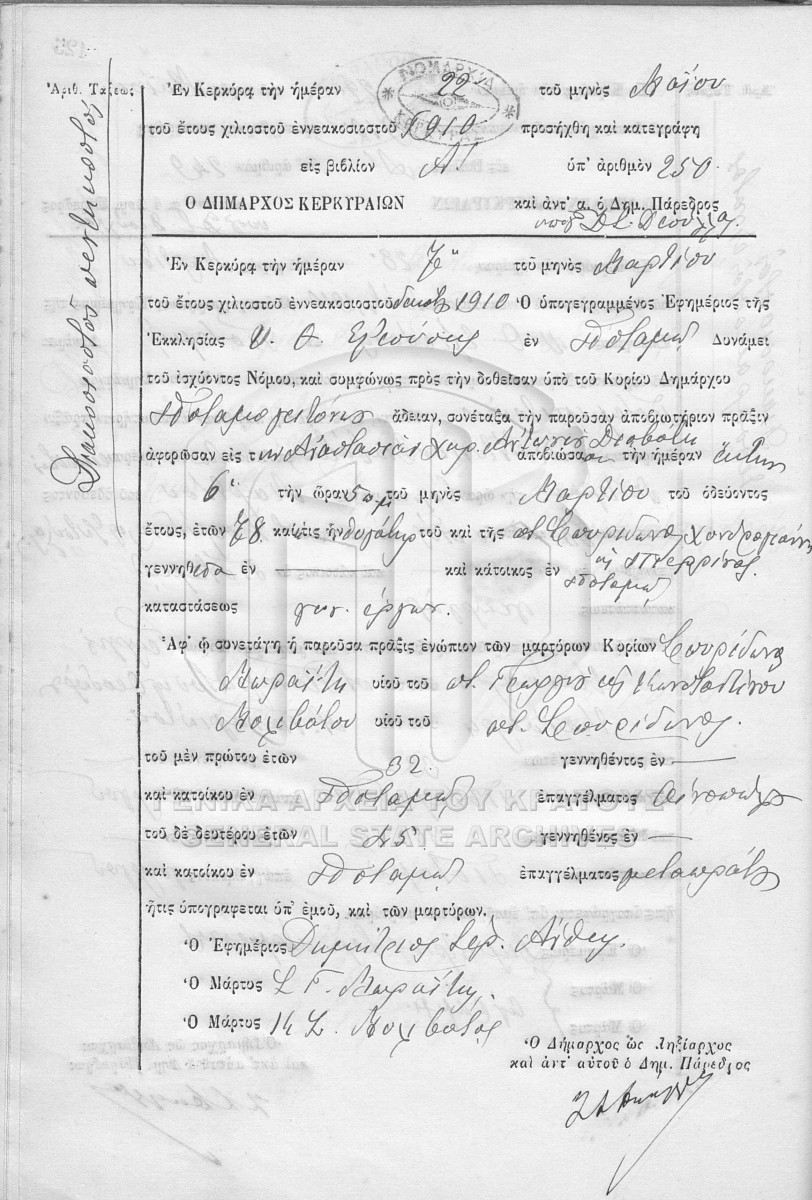 Ἀριθ. Τάξεως
Διακοσιοστὸς πεντηκοστός
ΝΟΜΑΡΧΙΑ
ΚΕΡΚΥΡΑΣ
Ἐν Κερκύρᾳ τὴν ἡμέραν 22 τοῦ μηνὸς Μαΐου
τοῦ ἔτους χιλιοστοῦ ἐννεακοσιοστοῦ 1910 προσήχθη καὶ κατεγράφη
εἰς βιβλίον Α! ὑπ' ἀριθμὸν 250.
Ὁ ΔΗΜΑΡΧΟΣ ΚΕΡΚΥΡΑΙΩΝ καὶ ἀντ' α. ὁ Δημ. Πάρεδρος
Ἐν Κερκύρᾳ τὴν ἡμέραν 7ῃ τοῦ μηνὸς Μαρτίου
τοῦ ἔτους χιλιοστοῦ ἐννεακοσιοστοῦ δεκάτου 1910 Ὁ ὑπογεγραμμένος Ἐφημέριος τῆς
Ἐκκλησίας Υ. Θ. ἐν Ποταμῷ Δυνάμει
τοῦ ἰσχύοντος Νόμου, καὶ συμφώνως πρὸς τὴν δοθεῖσαν ὑπὸ τοῦ Κυρίου Δημάρχου
Ποταμογειτόνης ἄδειαν, συνέταξα τὴν παροῦσαν ἀποβιωτήριον πρᾶξιν
ἀφορῶσαν εἰς τὴν Ἀναστασίαν χηρ. Ἀντωνίου ἀποβιώσασαν τὴν ἡμέραν ἕκτην
6ῃ τὴν ὥραν 5 π.μ. τοῦ μηνὸς Μαρτίου τοῦ ὁδεύοντος
ἔτους, ἐτῶν 78 καὶ τις ἦν θυγάτηρ τοῦ καὶ τῆς ποτ. Σπυρίδωνος Χονδρογιάννη
γεννηθεῖσα ἐν — καὶ κάτοικος ἐν Ποταμῷ
καταστάσεως
Ἀφ' ᾧ συνετάγη ἡ παροῦσα πρᾶξις ἐνώπιον τῶν μαρτύρων Κυρίων Σπυρίδωνος
Μωραΐτη υἱοῦ τοῦ ποτ. Γεωργίου κ Κωνσταντίνου
Μολιβάτου υἱοῦ τοῦ ποτ. Σπυρίδωνος.
τοῦ μὲν πρώτου ἐτῶν 32. γεννηθέντος ἐν —
καὶ κατοίκου ἐν Ποταμῷ ἐπαγγέλματος
τοῦ δὲ δευτέρου ἐτῶν 25 γεννηθένος ἐν —
καὶ κατοίκου ἐν Ποταμῷ ἐπαγγέλματος μεταπράτης
ἥτις ὑπογραφεται ὑπ' ἐμοῦ, καὶ τῶν μαρτύρων.
Ὁ Ἐφημέριος Δημήτριος
Ὁ Μάρτυς Σ Γ. Μωραΐτης
Ὁ Μάρτυς Κ Σ. Μολιβάτος
Ὁ Δήμαρχος ὡς Ληξίαρχος
καὶ ἀντ' αὐτοῦ ὁ Δημ. Πάρεδρος
ΓΕΝΙΚΑ ΑΡΧΕΙΑ ΤΟΥ ΚΡΑΤΟΥΣ
GENERAL STATE ARCHIVES